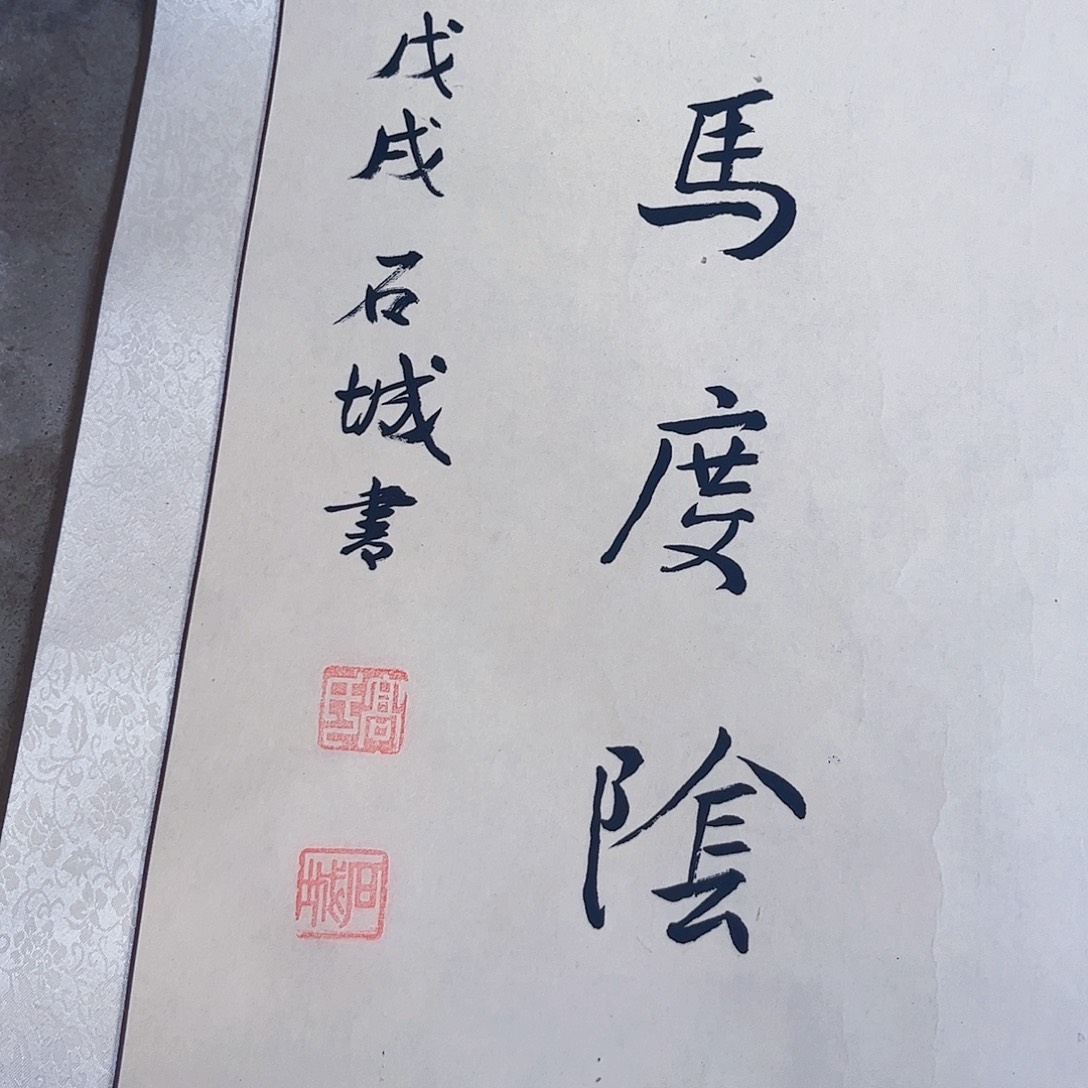 馬度陰
戊戌 石城書
石城